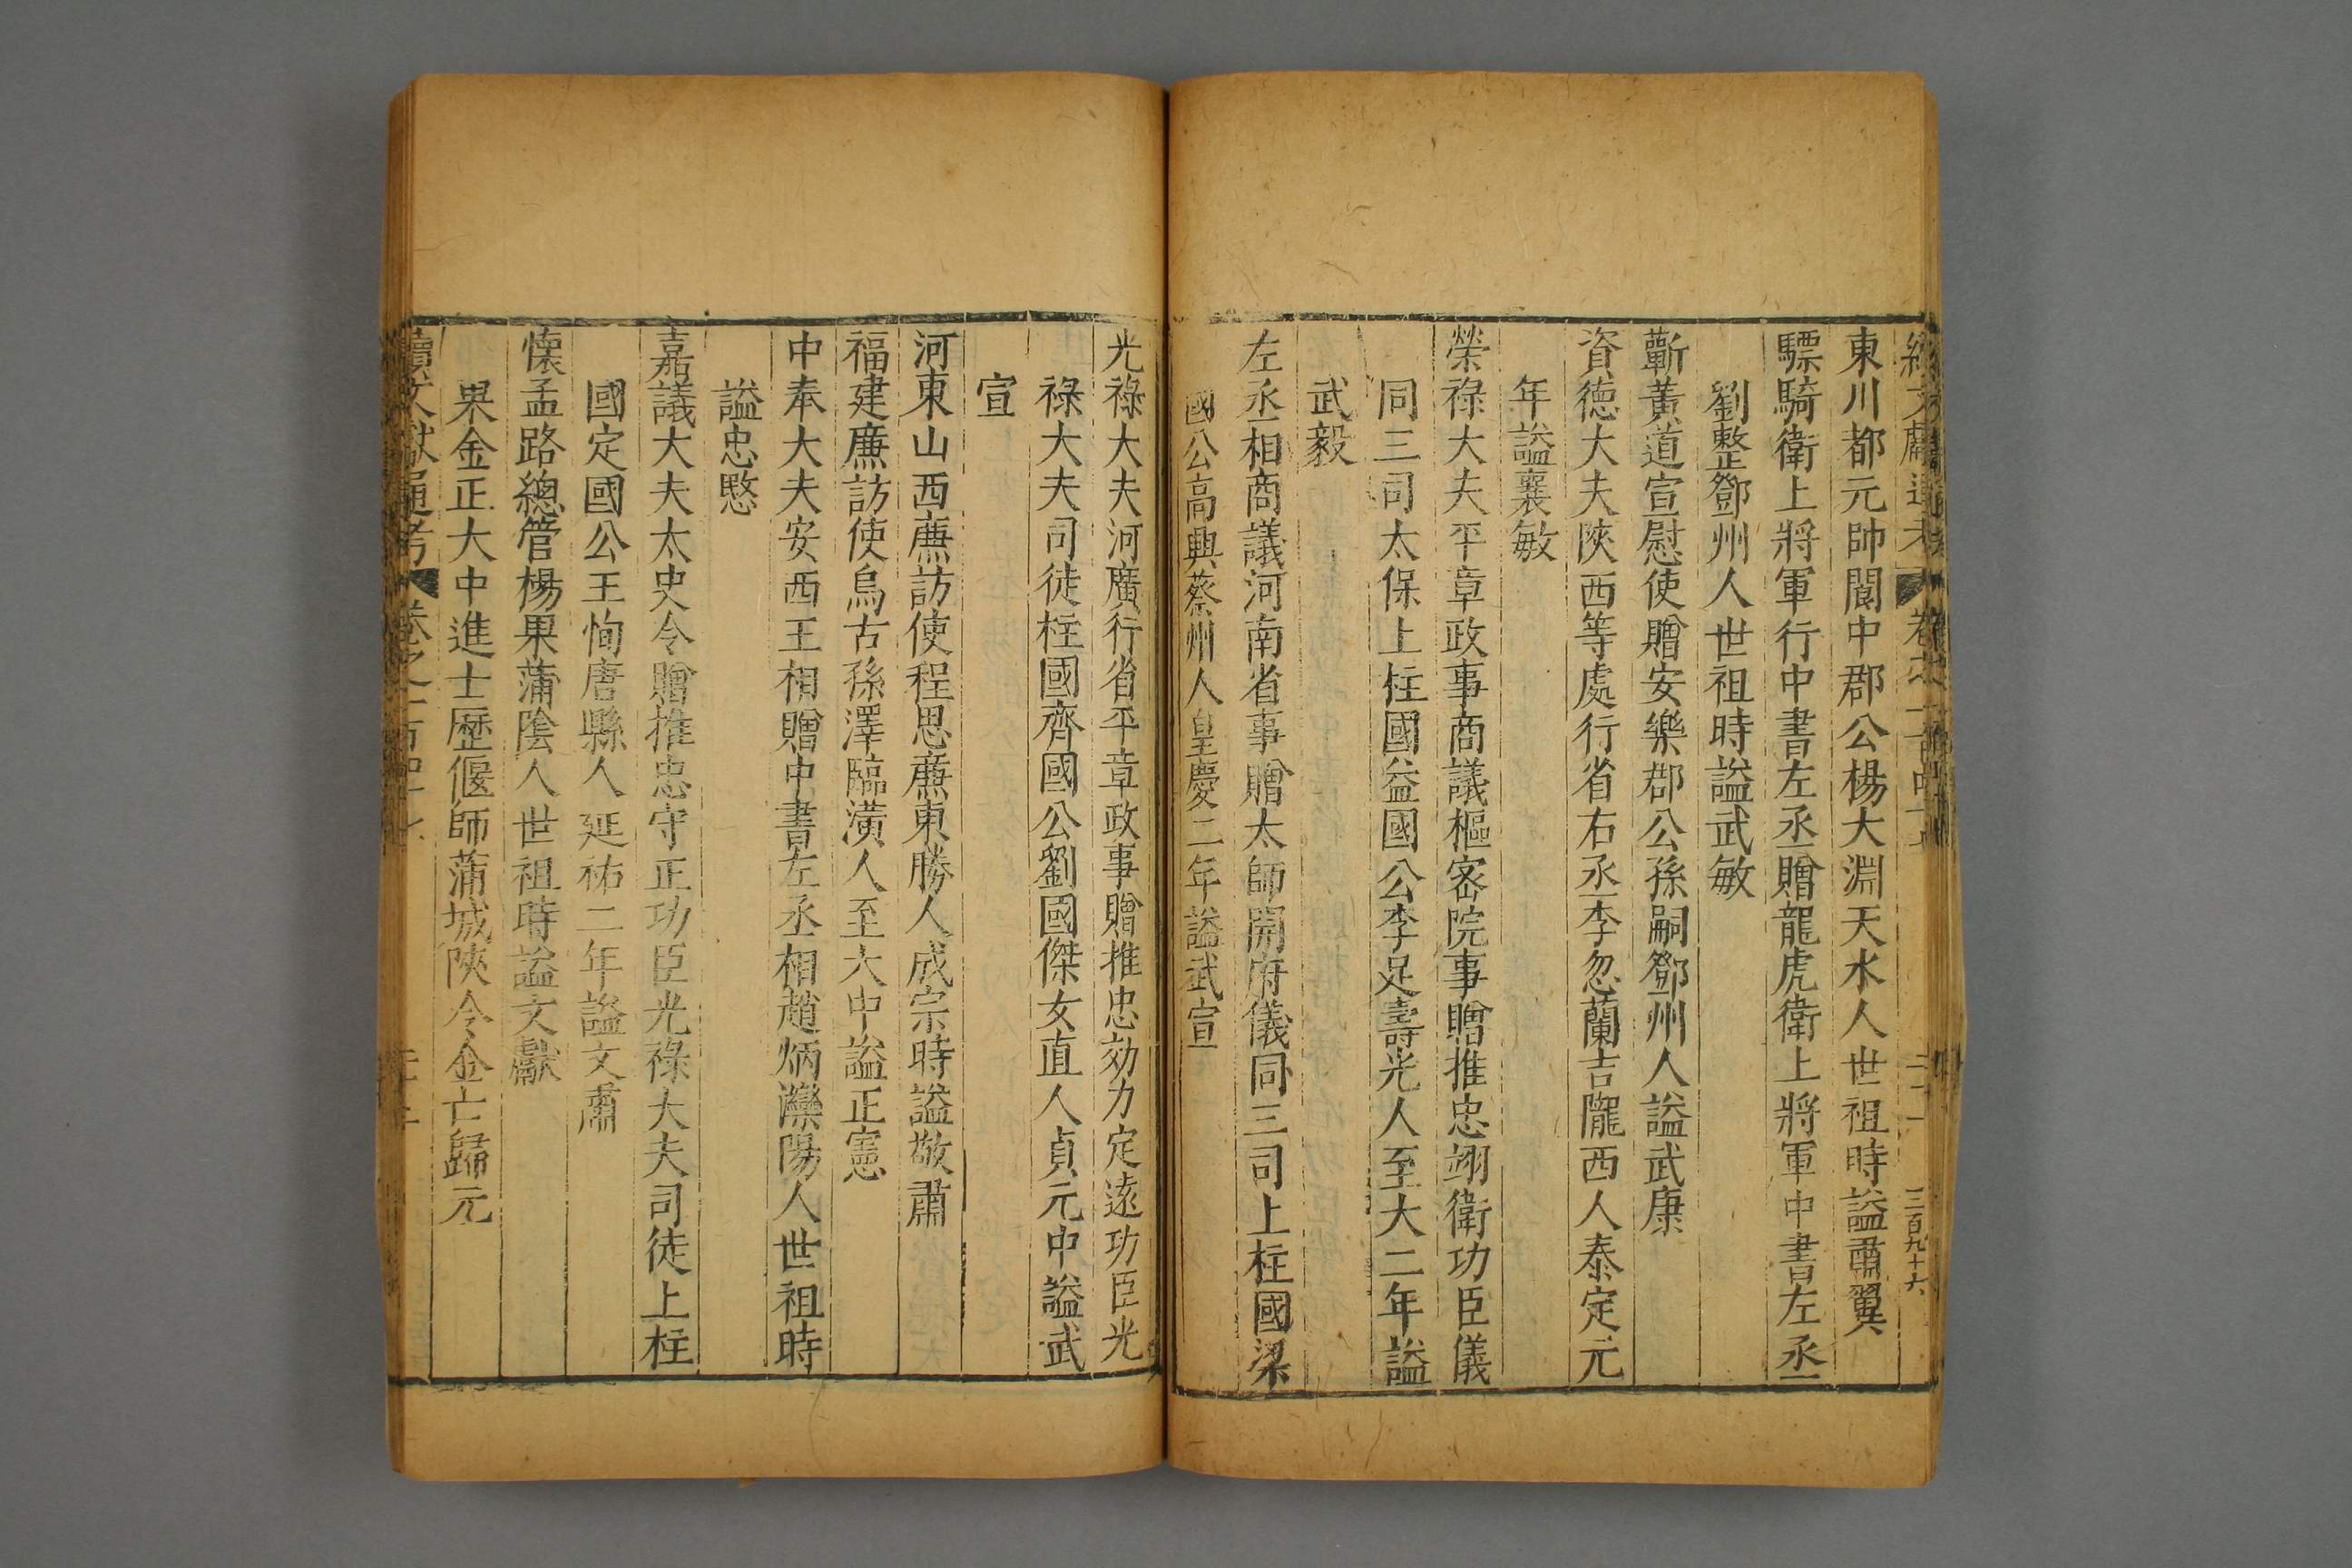 續文獻通考 卷之一百四十 三百九十六
東川都元帥閬中郡公楊大淵天水人世祖時謚肅翼
驃騎衛上將軍行中書左丞贈龍虎衛上將軍中書左丞
劉整鄧州人世祖時謚武敏
蘄黃道宣慰使贈安樂郡公孫嗣鄧州人謚武康
資德大夫陝西等處行省右丞李忽蘭吉隴西人泰定元
年謚襄敏
榮祿大夫平章政事商議樞密院事贈推忠翊衛功臣儀
同三司太保上柱國益國公李足壽光人至大二年謚
武毅
左丞相商議河南省事贈太師開府儀同三司上柱國梁
國公高興蔡州人皇慶二年謚武宣
光祿大夫河廣行省平章政事贈推忠効力定遠功臣光
祿大夫司徒柱國齊國公劉國傑女直人貞元中謚武
宣
河東山西廉訪使程思廉東勝人成宗時謚敬肅
福建廉訪使烏古孫澤臨潢人至大中謚正憲
中奉大夫安西王相贈中書左丞相趙炳灤陽人世祖時
謚忠愍
嘉議大夫太史令贈推忠守正功臣光祿大夫司徒上柱
國定國公王恂唐縣人延祐二年謚文肅
懷孟路總管楊果蒲陰人世祖時謚文獻
果金正大中進士歷偃師蒲城陝令金亡歸元
續文獻通考 卷之一百四十七